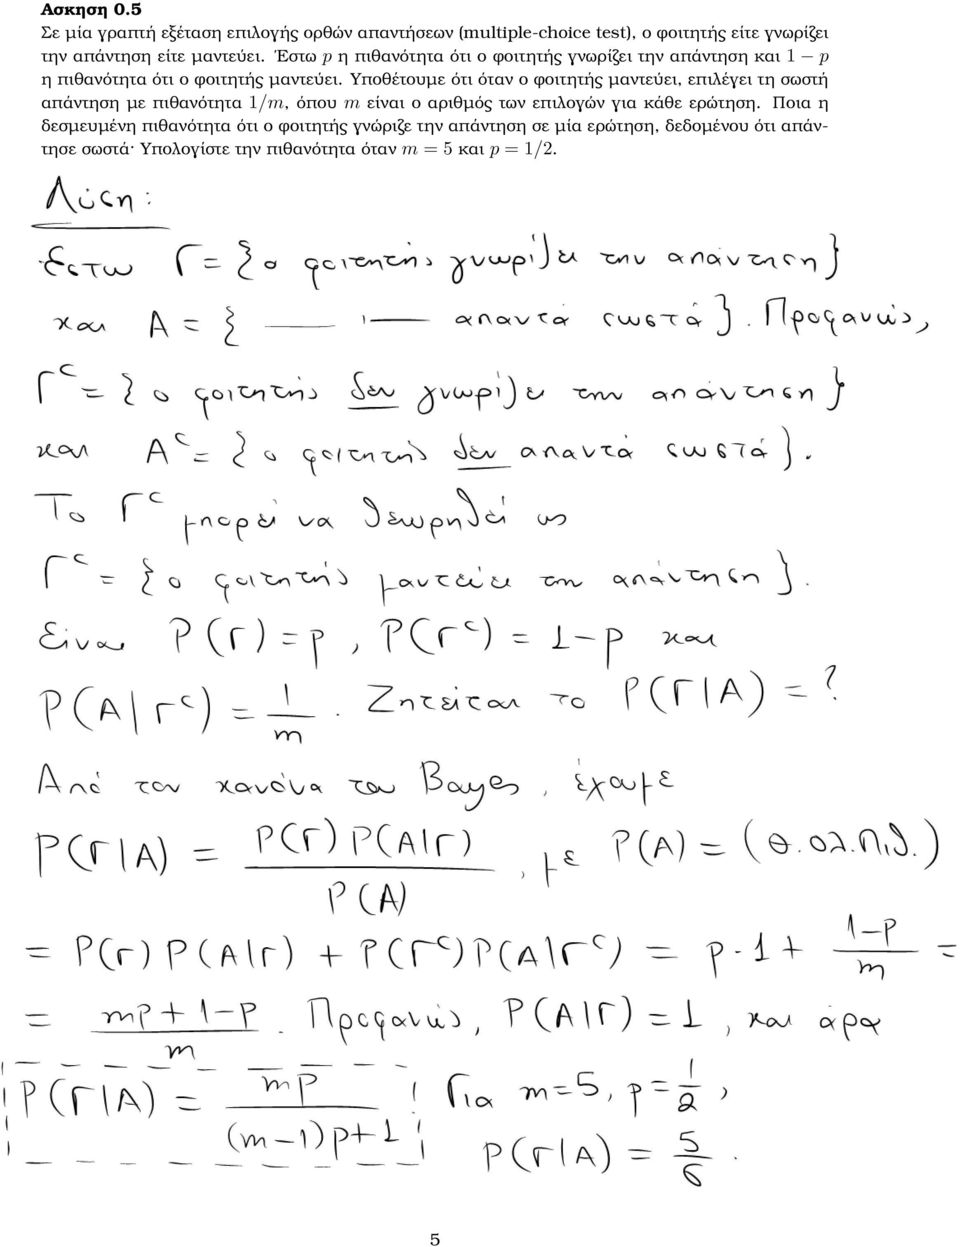 Ασκηση 0.5
Σε μία γραπτή εξέταση επιλογής ορθών απαντήσεων (multiple-choice test), ο φοιτητής είτε γνωρίζει
την απάντηση είτε μαντεύει. Έστω p η πιθανότητα ότι ο φοιτητής γνωρίζει την απάντηση και 1 − p
η πιθανότητα ότι ο φοιτητής μαντεύει. Υποθέτουμε ότι όταν ο φοιτητής μαντεύει, επιλέγει τη σωστή
απάντηση με πιθανότητα 1/m, όπου m είναι ο αριθμός των επιλογών για κάθε ερώτηση. Ποια η
δεσμευμένη πιθανότητα ότι ο φοιτητής γνώριζε την απάντηση σε μία ερώτηση, δεδομένου ότι απάν-
τησε σωστά· Υπολογίστε την πιθανότητα όταν m = 5 και p = 1/2.
Λύση:
Έστω Γ = {ο φοιτητής γνωρίζει την απάντηση}
και Α = { —— ι —— απαντά σωστά}. Προφανώς,
Γ^c = {ο φοιτητής δεν γνωρίζει την απάντηση}
και Α^c = {ο φοιτητής δεν απαντά σωστά}.
Το Γ^c μπορεί να θεωρηθεί ως
Γ^c = {ο φοιτητής μαντεύει την απάντηση}.
Είναι P(Γ) = p, P(Γ^c) = 1−p και
P(A|Γ^c) = 1/m. Ζητείται το P(Γ|A) = ?
Από τον κανόνα του Bayes, έχουμε
P(Γ|A) = P(Γ)P(A|Γ)/P(A), με P(A) = (Θ.Ολ.Πιθ.)
= P(Γ)P(A|Γ) + P(Γ^c)P(A|Γ^c) = p·1 + (1−p)/m =
= (mp+1−p)/m. Προφανώς, P(A|Γ) = 1, και άρα
P(Γ|A) = mp/((m−1)p+1) Για m=5, p=1/2,
P(Γ|A) = 5/6.
5